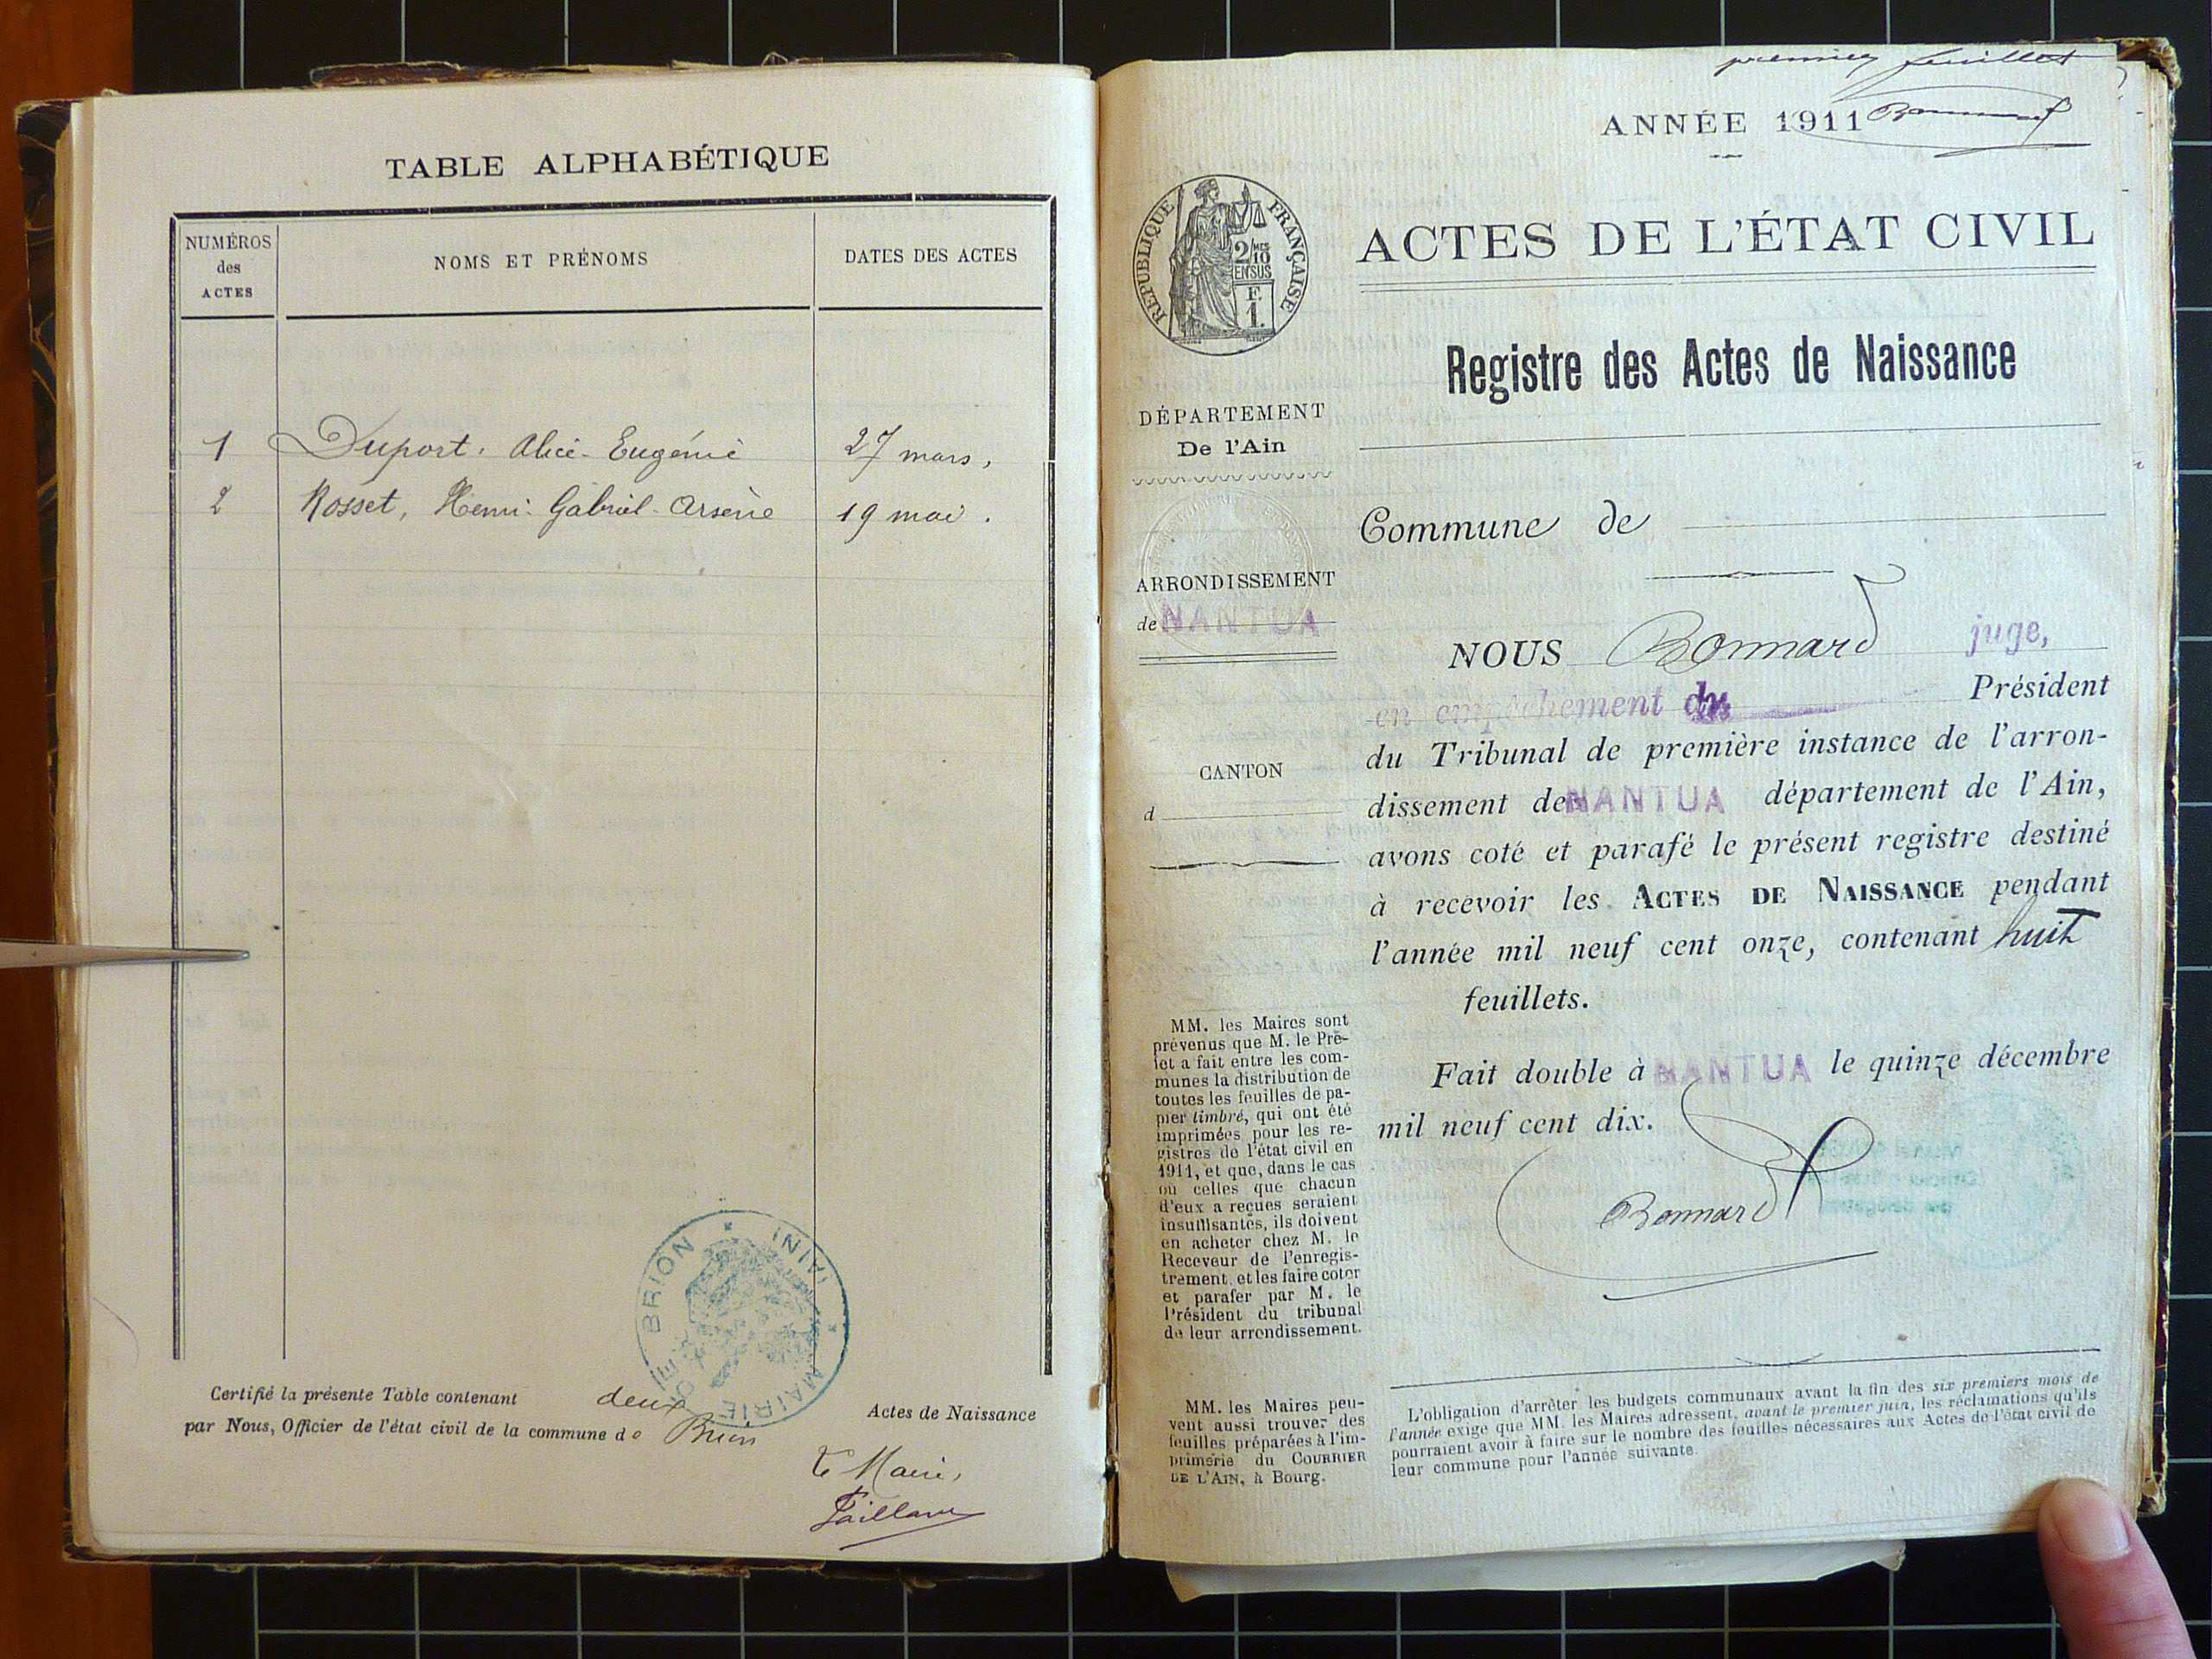 TABLE ALPHABÉTIQUE
NUMÉROS
des
ACTES
NOMS ET PRÉNOMS
DATES DES ACTES
1 Duport. Alice-Eugénie 27 mars,
2 Rosset, Henri-Gabriel-Arsène 19 mai.
MAIRIE DE BRION
Certifié la présente Table contenant deux Actes de Naissance
par Nous, Officier de l'état civil de la commune de Brion
Le Maire,
premier feuillet
ANNÉE 1911
Bonnard
RÉPUBLIQUE FRANÇAISE
2/10
MES
EN SUS
F.
1.
ACTES DE L'ÉTAT CIVIL
Registre des Actes de Naissance
DÉPARTEMENT
De l'Ain
ARRONDISSEMENT
de NANTUA
CANTON
d
Commune de
NOUS Bonnard juge,
en empêchement du Président
du Tribunal de première instance de l'arron-
dissement de NANTUA département de l'Ain,
avons coté et parafé le présent registre destiné
à recevoir les ACTES DE NAISSANCE pendant
l'année mil neuf cent onze, contenant huit
feuillets.
Fait double à NANTUA le quinze décembre
mil neuf cent dix.
Bonnard
MM. les Maires sont
prévenus que M. le Pré-
fet a fait entre les com-
munes la distribution de
toutes les feuilles de pa-
pier timbré, qui ont été
imprimées pour les re-
gistres de l'état civil en
1911, et que, dans le cas
où celles que chacun
d'eux a reçues seraient
insuffisantes, ils doivent
en acheter chez M. le
Receveur de l'enregis-
trement, et les faire coter
et parafer par M. le
Président du tribunal
de leur arrondissement.
MM. les Maires peu-
vent aussi trouver des
feuilles préparées à l'im-
primerie du COURRIER
DE L'AIN, à Bourg.
L'obligation d'arrêter les budgets communaux avant la fin des six premiers mois de
l'année exige que MM. les Maires adressent, avant le premier juin, les réclamations qu'ils
pourraient avoir à faire sur le nombre des feuilles nécessaires aux Actes de l'état civil de
leur commune pour l'année suivante.